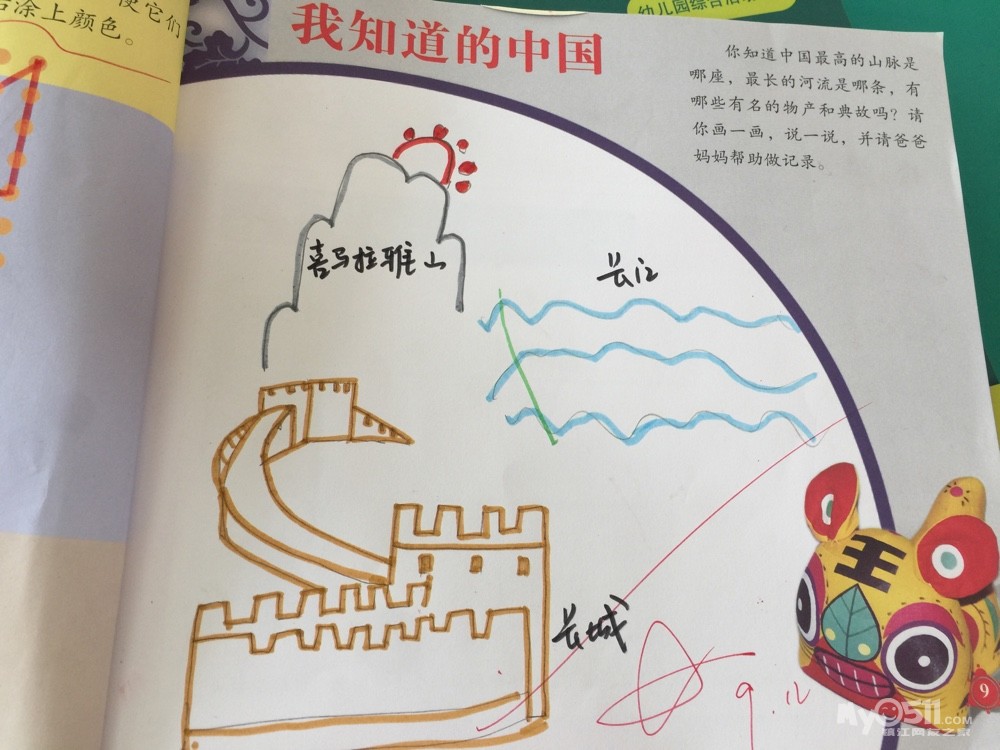 使它们
后涂上颜色。
幼儿园综合活
我知道的中国
你知道中国最高的山脉是
哪座，最长的河流是哪条，有
哪些有名的物产和典故吗？请
你画一画，说一说，并请爸爸
妈妈帮助做记录。
喜马拉雅山
长江
长城
王
9.12
9
My0511.com
镇江网友之家